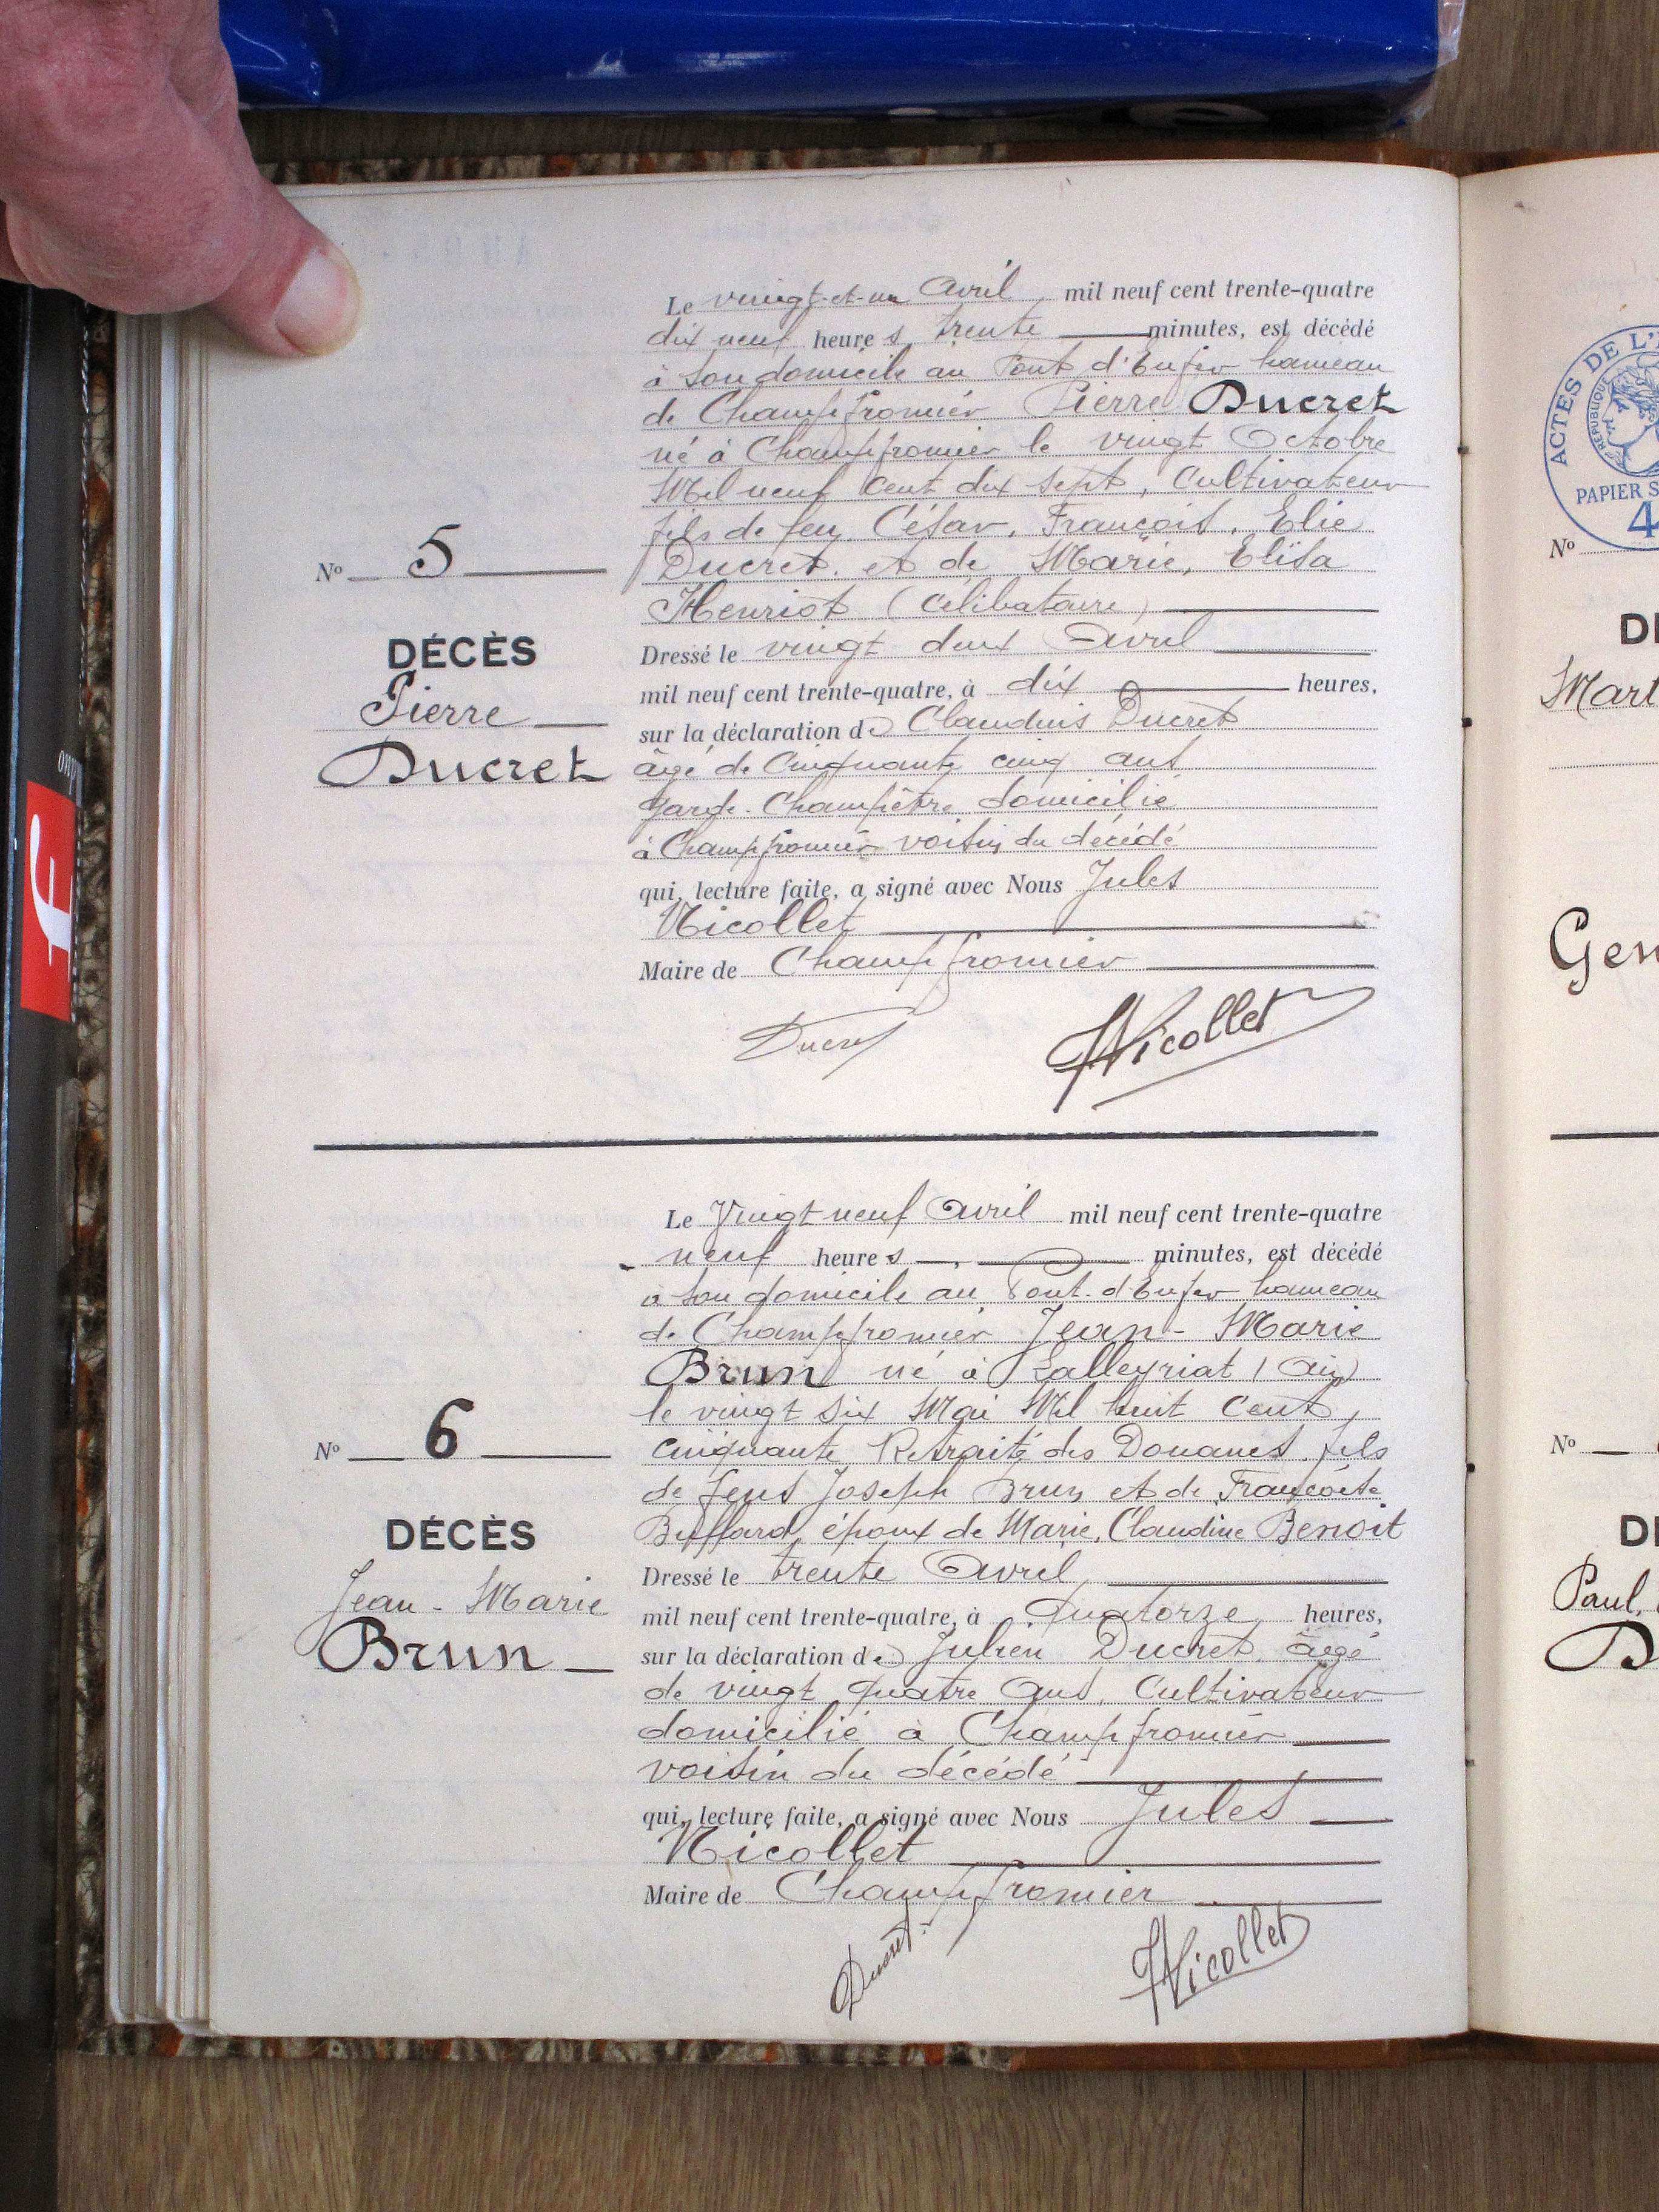 Le vingt-et-un Avril mil neuf cent trente-quatre
dix neuf heures trente minutes, est décédé
à son domicile au Pont d'Enfer hameau
de Champfromier Pierre Ducret
né à Champfromier le vingt Octobre
Mil neuf cent dix sept, Cultivateur
fils de feu César, François, Elie
Ducret et de Marie, Elisa
Henriot (célibataire)
Dressé le vingt deux Avril
mil neuf cent trente-quatre, à dix heures,
sur la déclaration de Claudius Ducret
âgé de Cinquante cinq ans
garde-Champêtre domicilié
à Champfromier voisin du décédé
qui, lecture faite, a signé avec Nous Jules
Nicollet
Maire de Champfromier
Ducret
JNicollet
No 5
DÉCÈS
Pierre
Ducret
Le Vingt neuf Avril mil neuf cent trente-quatre
neuf heures minutes, est décédé
à son domicile au Pont-d'Enfer hameau
de Champfromier Jean-Marie
Brun né à Lalleyriat (Ain)
le vingt six Mai Mil huit Cent
cinquante Retraité des Douanes, fils
de feus Joseph Brun et de Françoise
Buffard, époux de Marie, Claudine Benoit
Dressé le trente Avril
mil neuf cent trente-quatre, à Quatorze heures,
sur la déclaration de Julien Ducret, âgé
de vingt quatre ans, Cultivateur
domicilié à Champfromier
voisin du décédé
qui, lecture faite, a signé avec Nous Jules
Nicollet
Maire de Champfromier
Ducret
JNicollet
No 6
DÉCÈS
Jean-Marie
Brun
ACTES DE L'
RÉPUBLIQUE
PAPIER S
4
No
D
Mart
Gen
No
D
Paul,
D
f